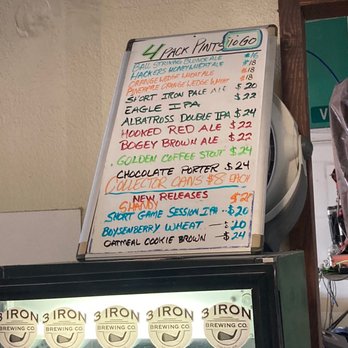 4 PACK PINTS TO GO
BALL STRIKING BLONDE ALE $16
HACKERS HONEY WHEAT ALE $18
ORANGE WEDGE WHEAT ALE $18
PINEAPPLE ORANGE WEDGE WHEAT $20
SHORT IRON PALE ALE $22
EAGLE IPA
ALBATROSS DOUBLE IPA $24
HOOKED RED ALE $22
BOGEY BROWN ALE $22
GOLDEN COFFEE STOUT $24
CHOCOLATE PORTER $24
COLLECTOR CANS $8 EACH
NEW RELEASES
SHANDY $20
SHORT GAME SESSION IPA - $20
BOYSENBERRY WHEAT - $20
OATMEAL COOKIE BROWN - $24
3 IRON BREWING CO.
3 IRON BREWING CO.
3 IRON BREWING CO.
3 IRON BREWING CO.